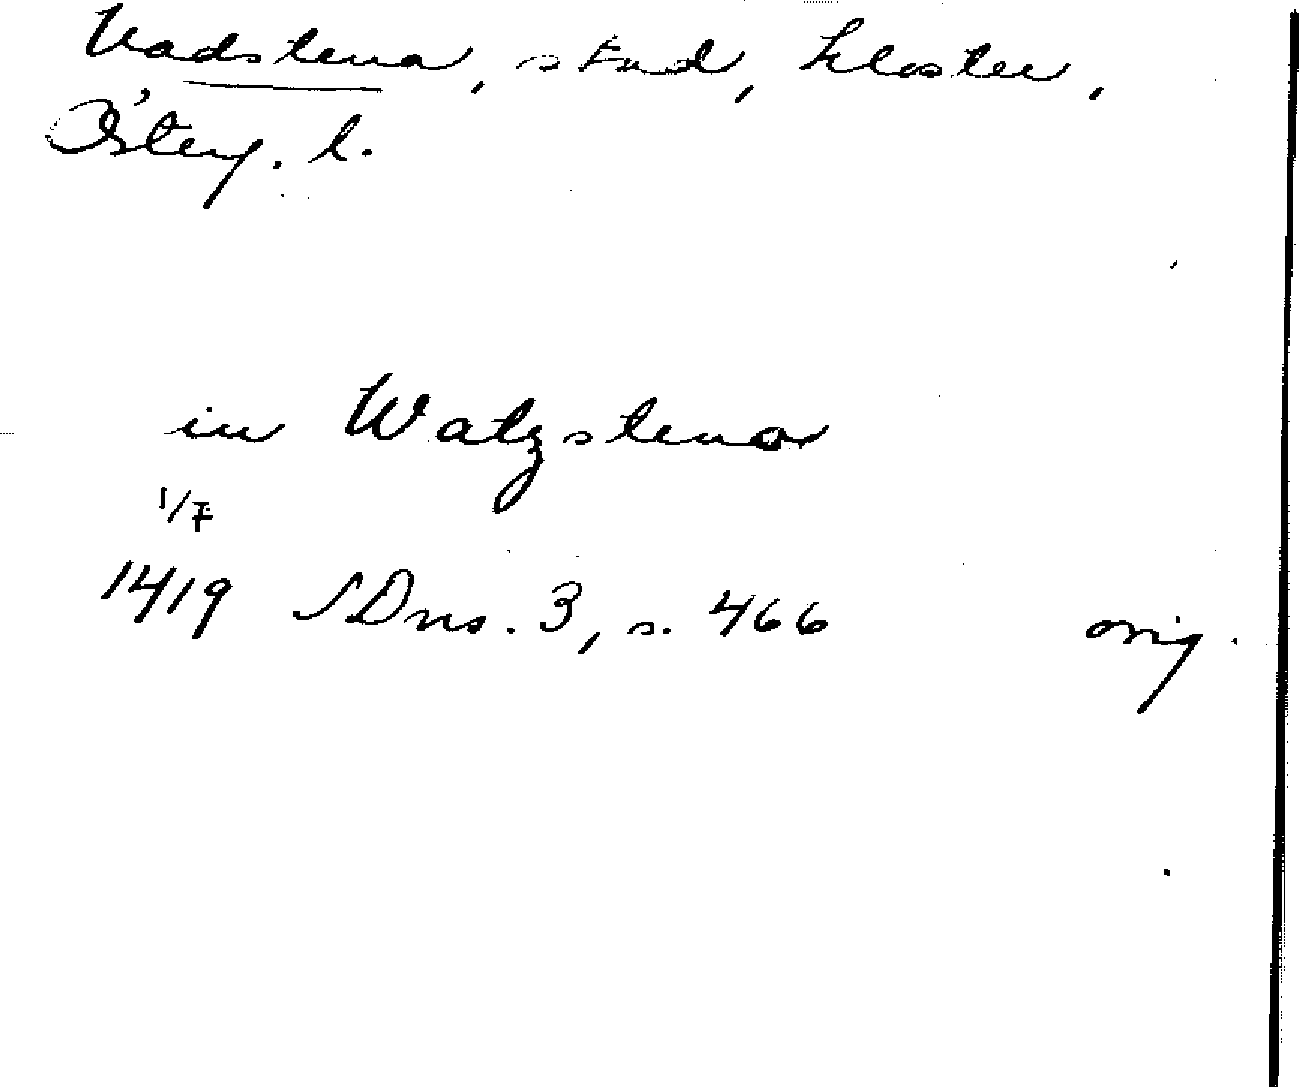 Vadstena, stad, kloster,
Österg. l.
in Watzstena
1/7
1419 SDns. 3, s. 466 orig.